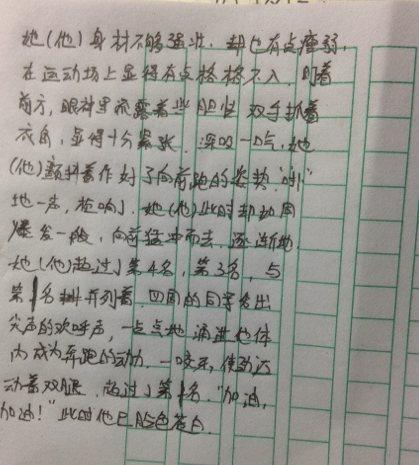 她(他)身材不够强壮，却也有点瘦弱，
在运动场上显得有点格格不入，盯着
前方，眼神里流露着些胆怯 双手抓着
衣角，显得十分紧张，深吸一口气，她
(他)颤抖着作好了向前跑的姿势."呯"
地一声，枪响了，她(他)此时却如同
爆发一般，向前猛冲而去，逐渐地
她(他)超过了第4名，第3名，与
第1名并列着，四周的同学发出
尖声的欢呼声，一点点地涌进他体
内成为奔跑的动力，一咬牙，使劲迈
动着双腿，超过了第1名，"加油，
加油！"此时他已脸色苍白.